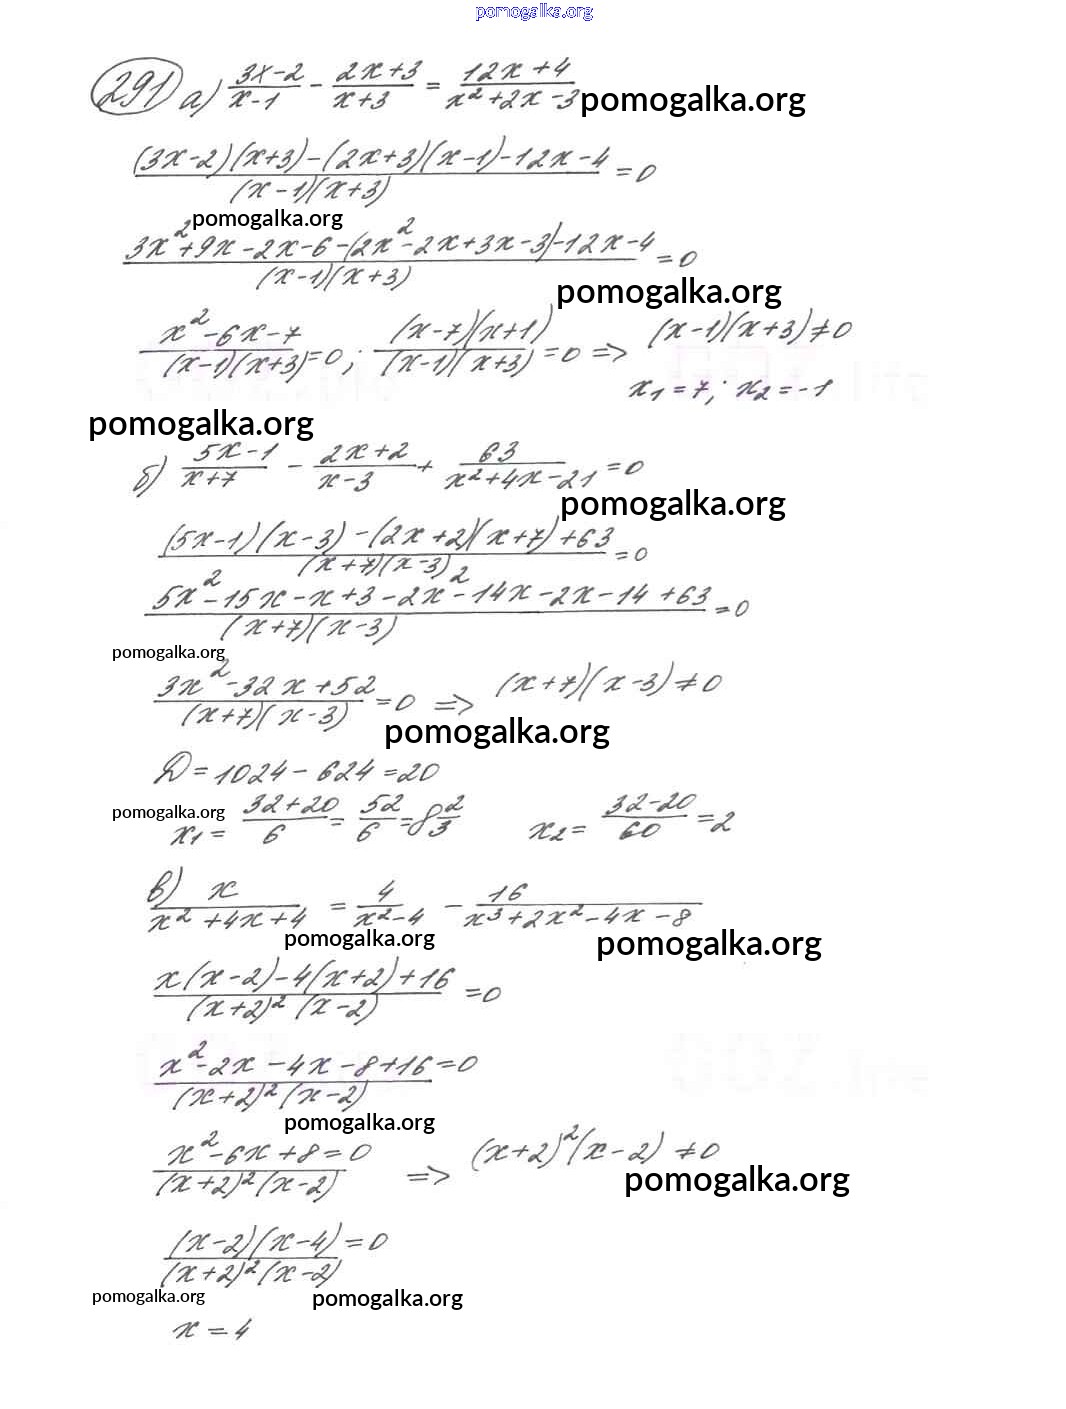 pomogalka.org
291 а) (3x-2)/(x-1) - (2x+3)/(x+3) = (12x+4)/(x²+2x-3)
pomogalka.org
((3x-2)(x+3)-(2x+3)(x-1)-12x-4)/((x-1)(x+3)) = 0
pomogalka.org
(3x²+9x-2x-6-(2x²-2x+3x-3)-12x-4)/((x-1)(x+3)) = 0
pomogalka.org
(x²-6x-7)/((x-1)(x+3)) = 0; ((x-7)(x+1))/((x-1)(x+3)) = 0 => (x-1)(x+3)≠0
x₁=7; x₂=-1
pomogalka.org
б) (5x-1)/(x+7) - (2x+2)/(x-3) + 63/(x²+4x-21) = 0
pomogalka.org
((5x-1)(x-3)-(2x+2)(x+7)+63)/((x+7)(x-3)) = 0
(5x²-15x-x+3-2x²-14x-2x-14+63)/((x+7)(x-3)) = 0
pomogalka.org
(3x²-32x+52)/((x+7)(x-3)) = 0 => (x+7)(x-3)≠0
pomogalka.org
D=1024-624=20
pomogalka.org
x₁ = (32+20)/6 = 52/6 = 8 2/3 x₂ = (32-20)/60 = 2
в) x/(x²+4x+4) = 4/(x²-4) - 16/(x³+2x²-4x-8)
pomogalka.org pomogalka.org
(x(x-2)-4(x+2)+16)/((x+2)²(x-2)) = 0
(x²-2x-4x-8+16=0)/((x+2)²(x-2))
pomogalka.org
(x²-6x+8=0)/((x+2)²(x-2)) => (x+2)²(x-2)≠0
pomogalka.org
((x-2)(x-4)=0)/((x+2)²(x-2))
pomogalka.org pomogalka.org
x = 4